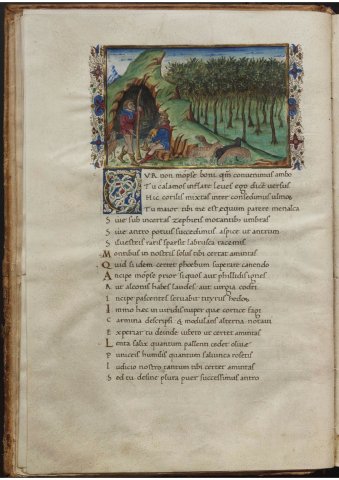 CUR non mopse boni qm̄ convenimus ambo
Tu calamos inflare leves ego dicē versus
Hic corilis mixtas inter consedimus ulmos
Tu maior tibi me est equum parere menalca
Sive sub incertas zephiris motantibus umbras
Sive antro potius succedimus aspice ut antrum
Silvestris raris sparsit labrusca racemis
Montibus in nostris solus tibi certat amintas
Quid si idem certet phoebum superare canendo
Incipe mopse prior si quos aut phillidis ignes
Aut alconis habes laudes aut iurgia codri
Incipe pascentes servabit tityrus hedos
Immo hec in viridi nuper quae cortice fagi
Carmina descripsi & modulans alterna notavi
Experiar tu deinde iubeto ut certet amintas
Lenta salix quantum pallenti cedit olivae
Puniceis humilis quantum saliunca rosetis
Iudicio nostro tantum tibi certet amintas
Sed tu desine plura puer successimus antro